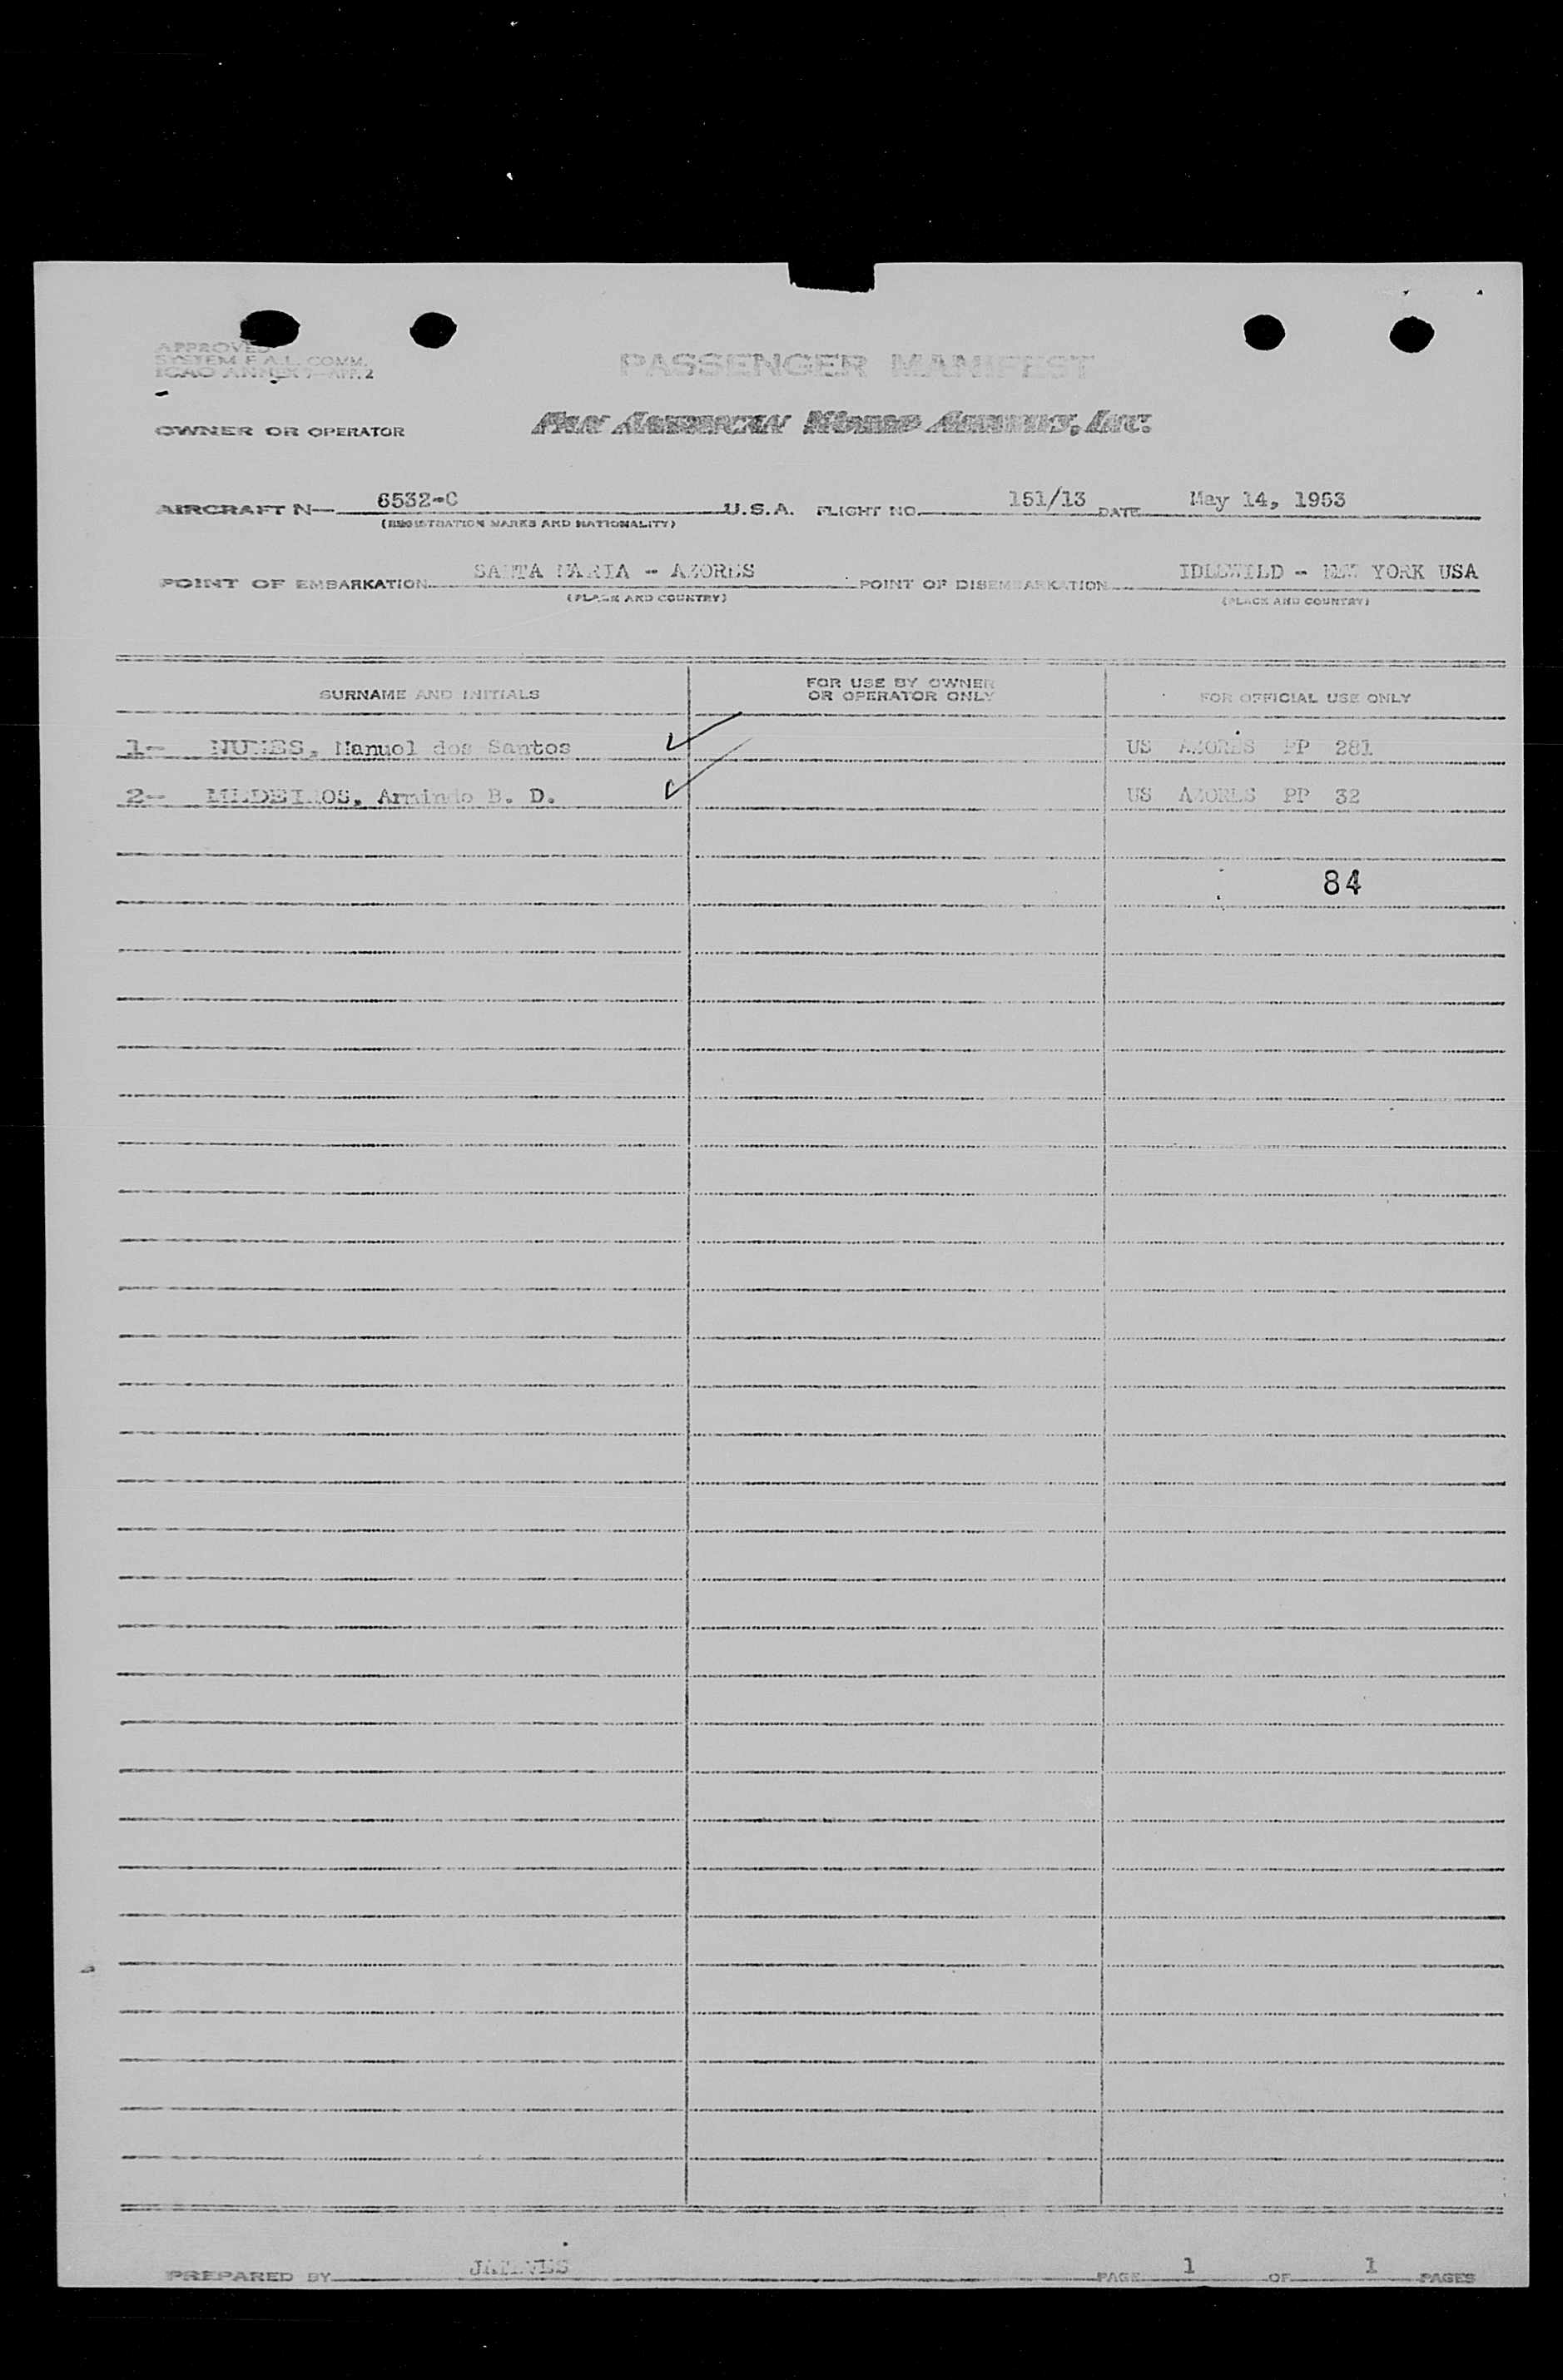 APPROVED
SYSTEM F.A.L. COMM.
ICAO ANNEX 9—APP. 2
PASSENGER MANIFEST
OWNER OR OPERATOR PAN AMERICAN WORLD AIRWAYS, INC.
AIRCRAFT N— 6532-C U.S.A. FLIGHT NO. 151/13 DATE May 14, 1953
(REGISTRATION MARKS AND NATIONALITY)
POINT OF EMBARKATION SANTA MARIA - AZORES POINT OF DISEMBARKATION IDLEWILD - NEW YORK USA
(PLACE AND COUNTRY) (PLACE AND COUNTRY)
SURNAME AND INITIALS FOR USE BY OWNER OR OPERATOR ONLY FOR OFFICIAL USE ONLY
1- NUNES, Manuel dos Santos US AZORES PP 281
2- MEDEIROS, Armindo B. D. US AZORES PP 32
84
PREPARED BY PAGE 1 OF 1 PAGES